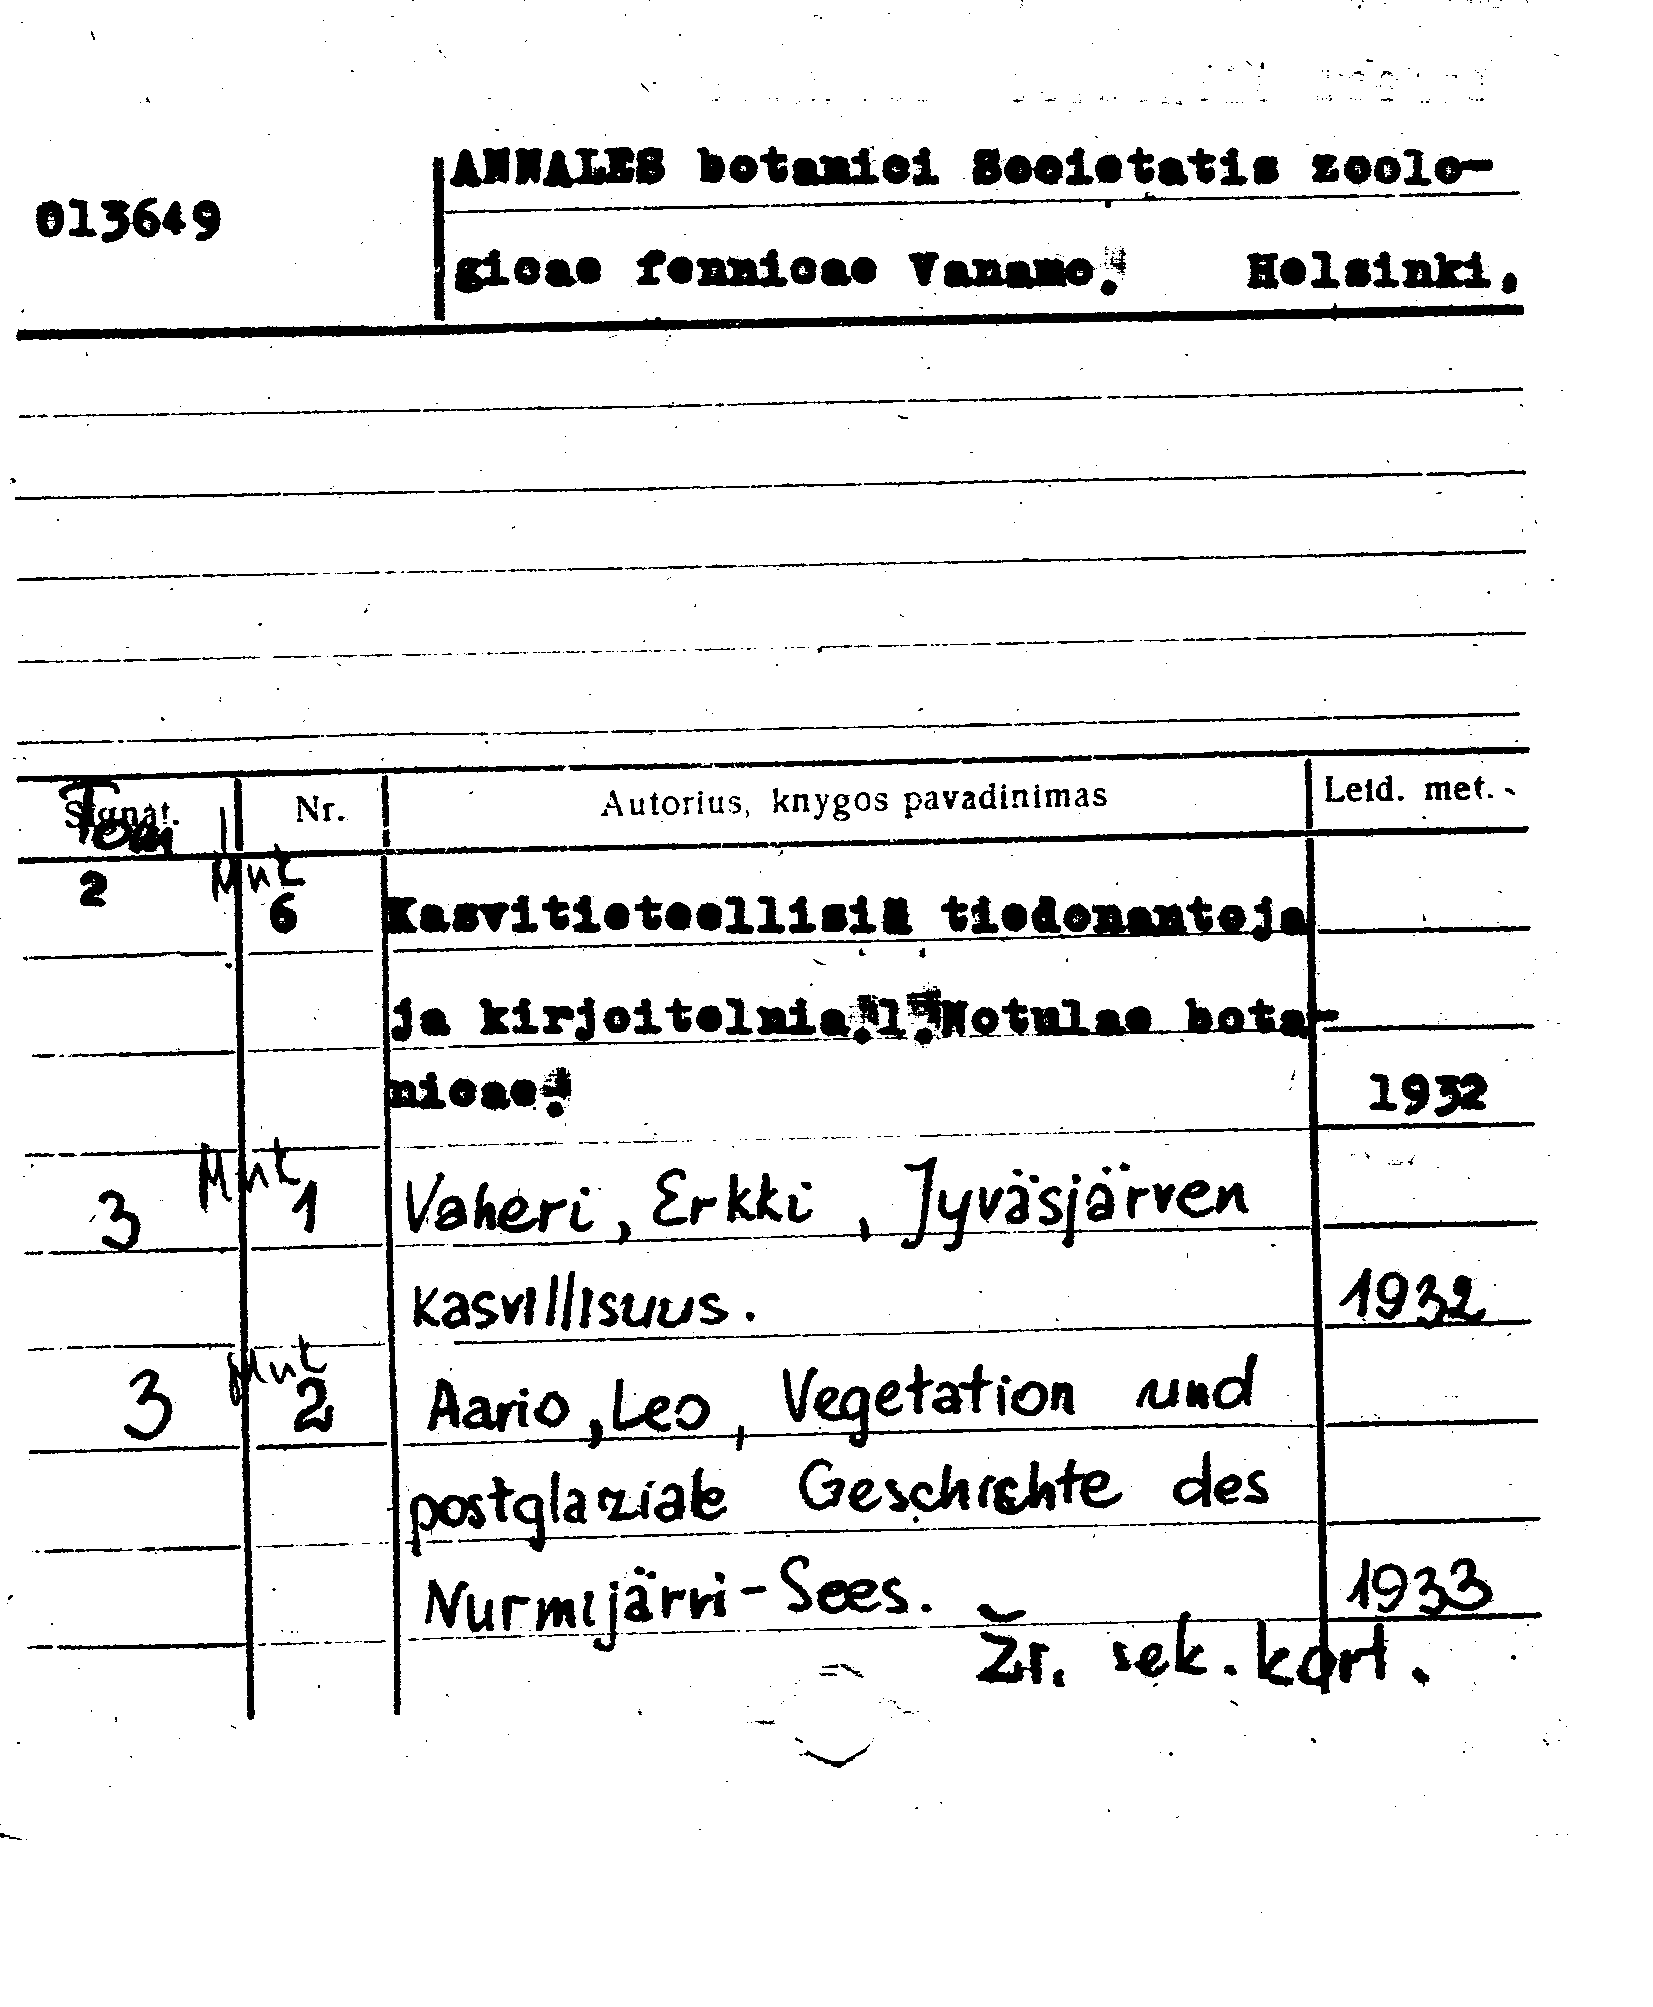 ANNALES botanici Societatis zoolo-
013649
gicae fennicae Vanamo. Helsinki.
Signat. Tom Nr. Autorius, knygos pavadinimas Leid. met.
2 6 Kasvitieteellisiä tiedonantoja
ja kirjoitelmia.1.Notulae bota-
nicae. 1932
3 1 Vaheri, Erkki, Jyväsjärven
kasvillisuus. 1932
3 2 Aario, Leo, Vegetation und
postglaziale Geschichte des
Nurmijärvi-Sees. 1933
Žr. sek. kort.